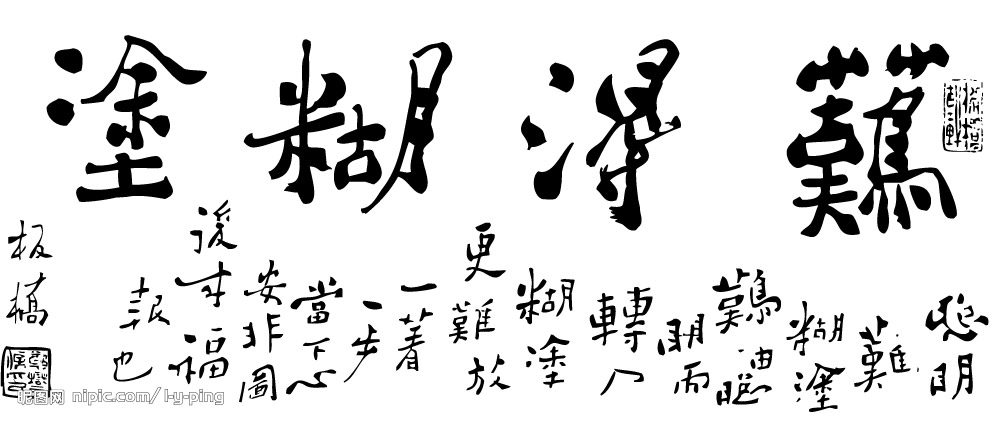 難得糊塗
聰明
難
糊塗
難由聰
明而
轉入
糊塗
更難放
一着
一步
當下心
安非圖
後來福
報也
板橋
昵图网 nipic.com/l-y-ping